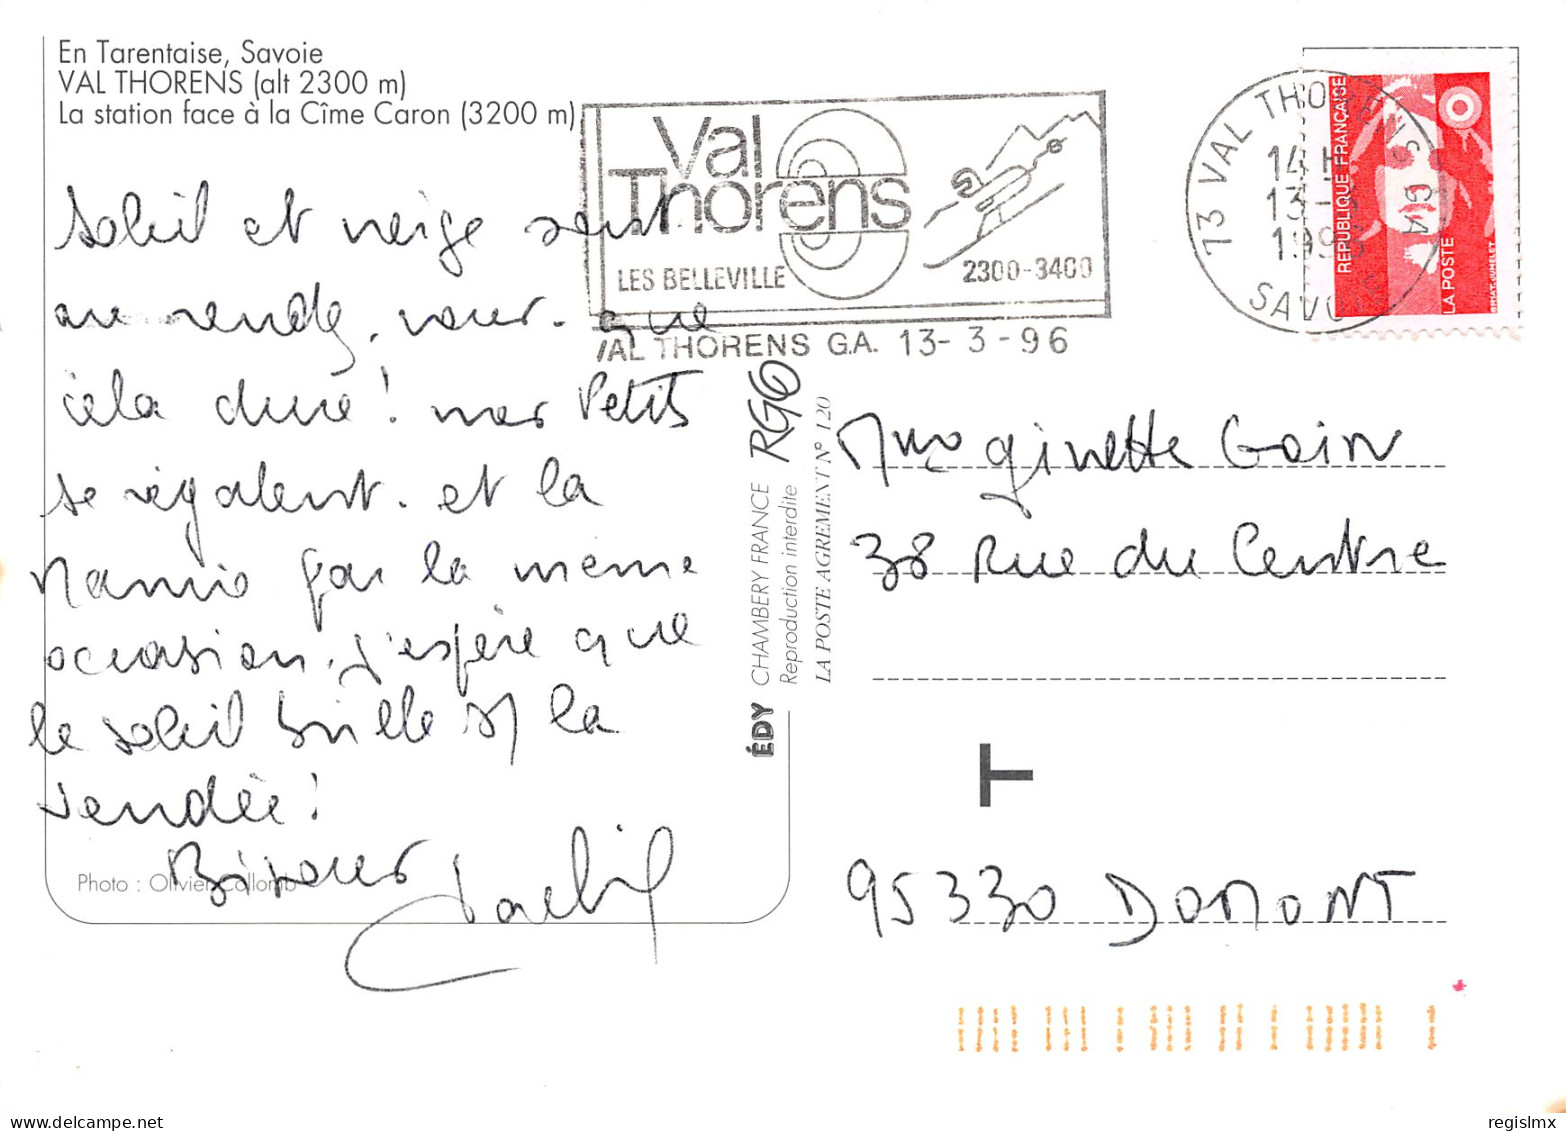 En Tarentaise, Savoie
VAL THORENS (alt 2300 m)
La station face à la Cîme Caron (3200 m)
Soleil et neige sont
au rendez-vous. que
cela dure! mes Petits
se régalent. et la
Mamie par la même
occasion. j'espère que
le soleil brille s/ la
Vendée!
Bisous
Photo : Olivier Collomb
Val
Thorens
LES BELLEVILLE
2300-3400
VAL THORENS G.A. 13-3-96
13 VAL THORENS GA
14 H
13-3
1996
SAVOIE
RÉPUBLIQUE FRANÇAISE
LA POSTE
BRIAT-JUMELET
ÉDY CHAMBERY FRANCE
Reproduction interdite
LA POSTE AGREMENT N° 120
Mme Ginette Gain
38 Rue du Centre
T
95330 DOMONT
regislmx